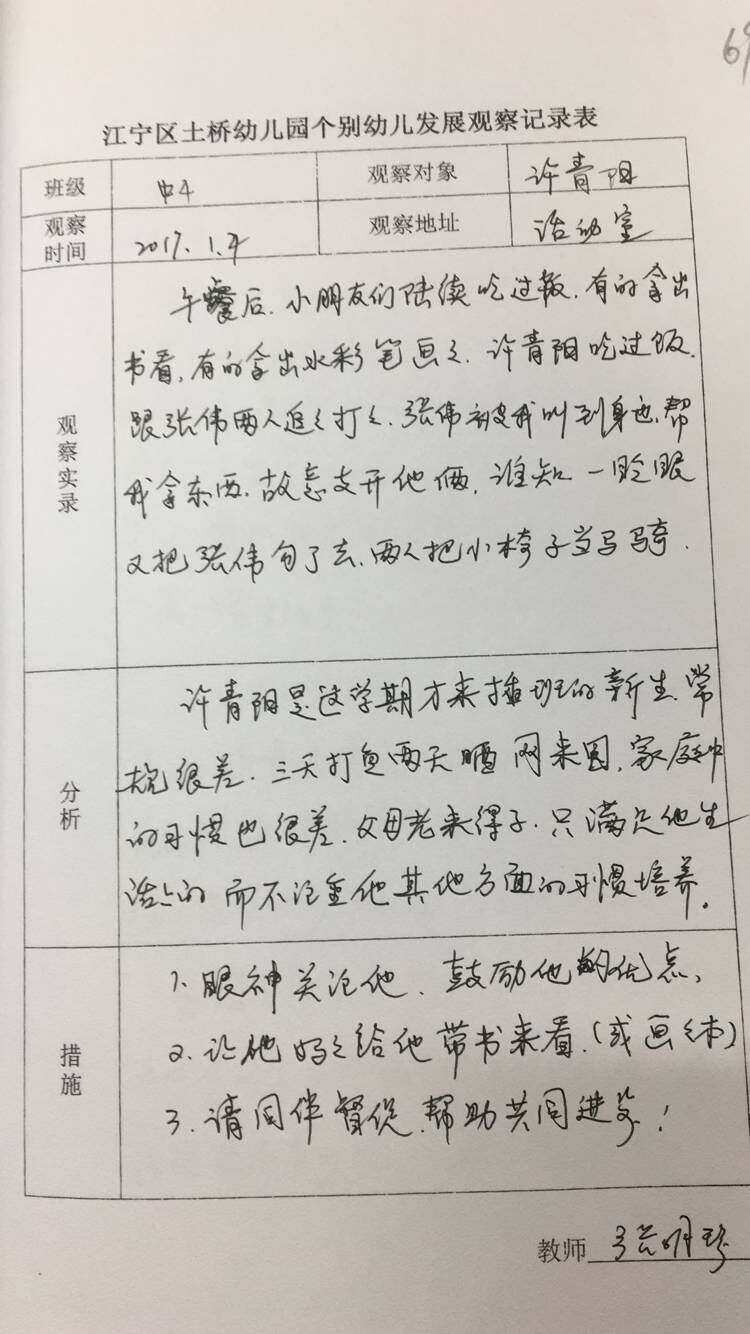 69
江宁区土桥幼儿园个别幼儿发展观察记录表
班级 中4 观察对象 许青阳
观察时间 2017.1.4 观察地址 活动室
观察实录
午餐后.小朋友们陆续吃过饭.有的拿出
书看,有的拿出水彩笔画画.许青阳吃过饭.
跟张伟两人追追打打.张伟被我叫到身边,帮
我拿东西.故意支开他俩,谁知一眨眼
又把张伟勾了去.两人把小椅子当马骑.
分析
许青阳是这学期才来插班的新生,常
规很差.三天打鱼两天晒网来园,家庭中
的习惯也很差.父母老来得子.只满足他生
活上的而不注重他其他方面的习惯培养。
措施
1.眼神关注他、鼓励他的优点,
2.让他妈妈给他带书来看.(或画画本)
3.请同伴督促.帮助共同进步!
教师 张明珍